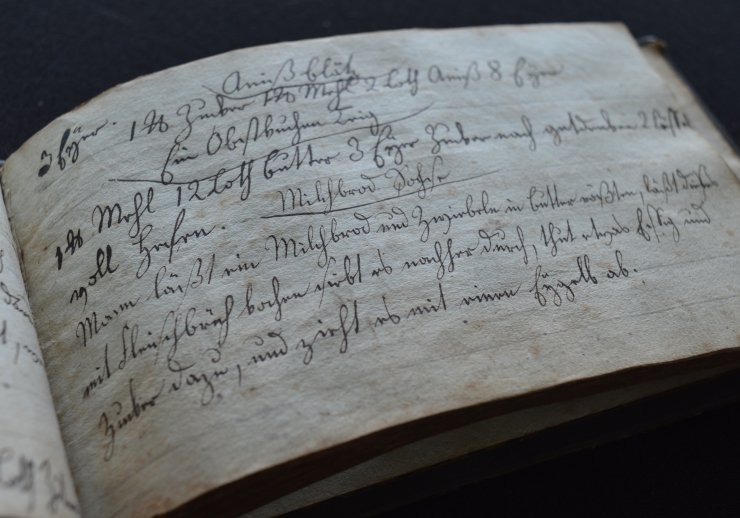 3 Eÿer.
Anißblätz
1 ℔ Zucker 1 ℔ Mehl 2 loth Aniß 8 Eÿer
Ein Obstkuchen Teig
1 ℔ Mehl 12 loth butter 3 Eÿer Zucker nach gutdunken 2 löffel
voll Hefen.
Milchbrod Sohse
Mann läßt ein Milchbrod und Zwiebeln in butter rößten, läßt dieses
mit Fleischbrüh kochen siebt es nachher durch, thut etwas Essig und
Zucker dazu, und zieht es mit einem Eÿgelb ab.